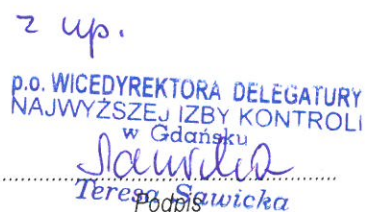 z up.
p.o. WICEDYREKTORA DELEGATURY
NAJWYŻSZEJ IZBY KONTROLI
w Gdańsku
Sawicka
Teresa Sawicka
Podpis